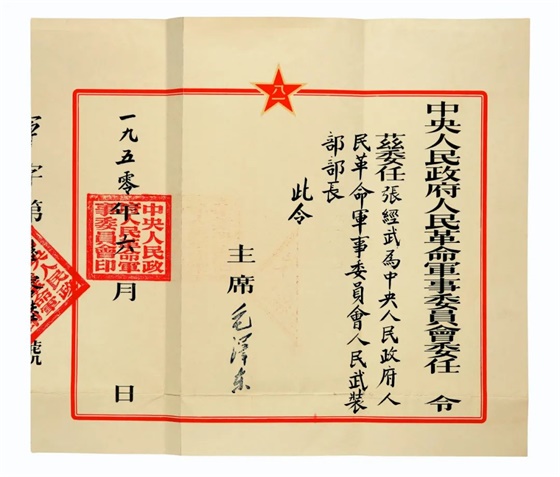 八一
中央人民政府人民革命軍事委員會委任令
茲委任張經武為中央人民政府人
民革命軍事委員會人民武裝
部部長
此令
主席 毛澤東
一九五零年六月 日
中央人民政
府人民革命軍
事委員會印
軍字第 號